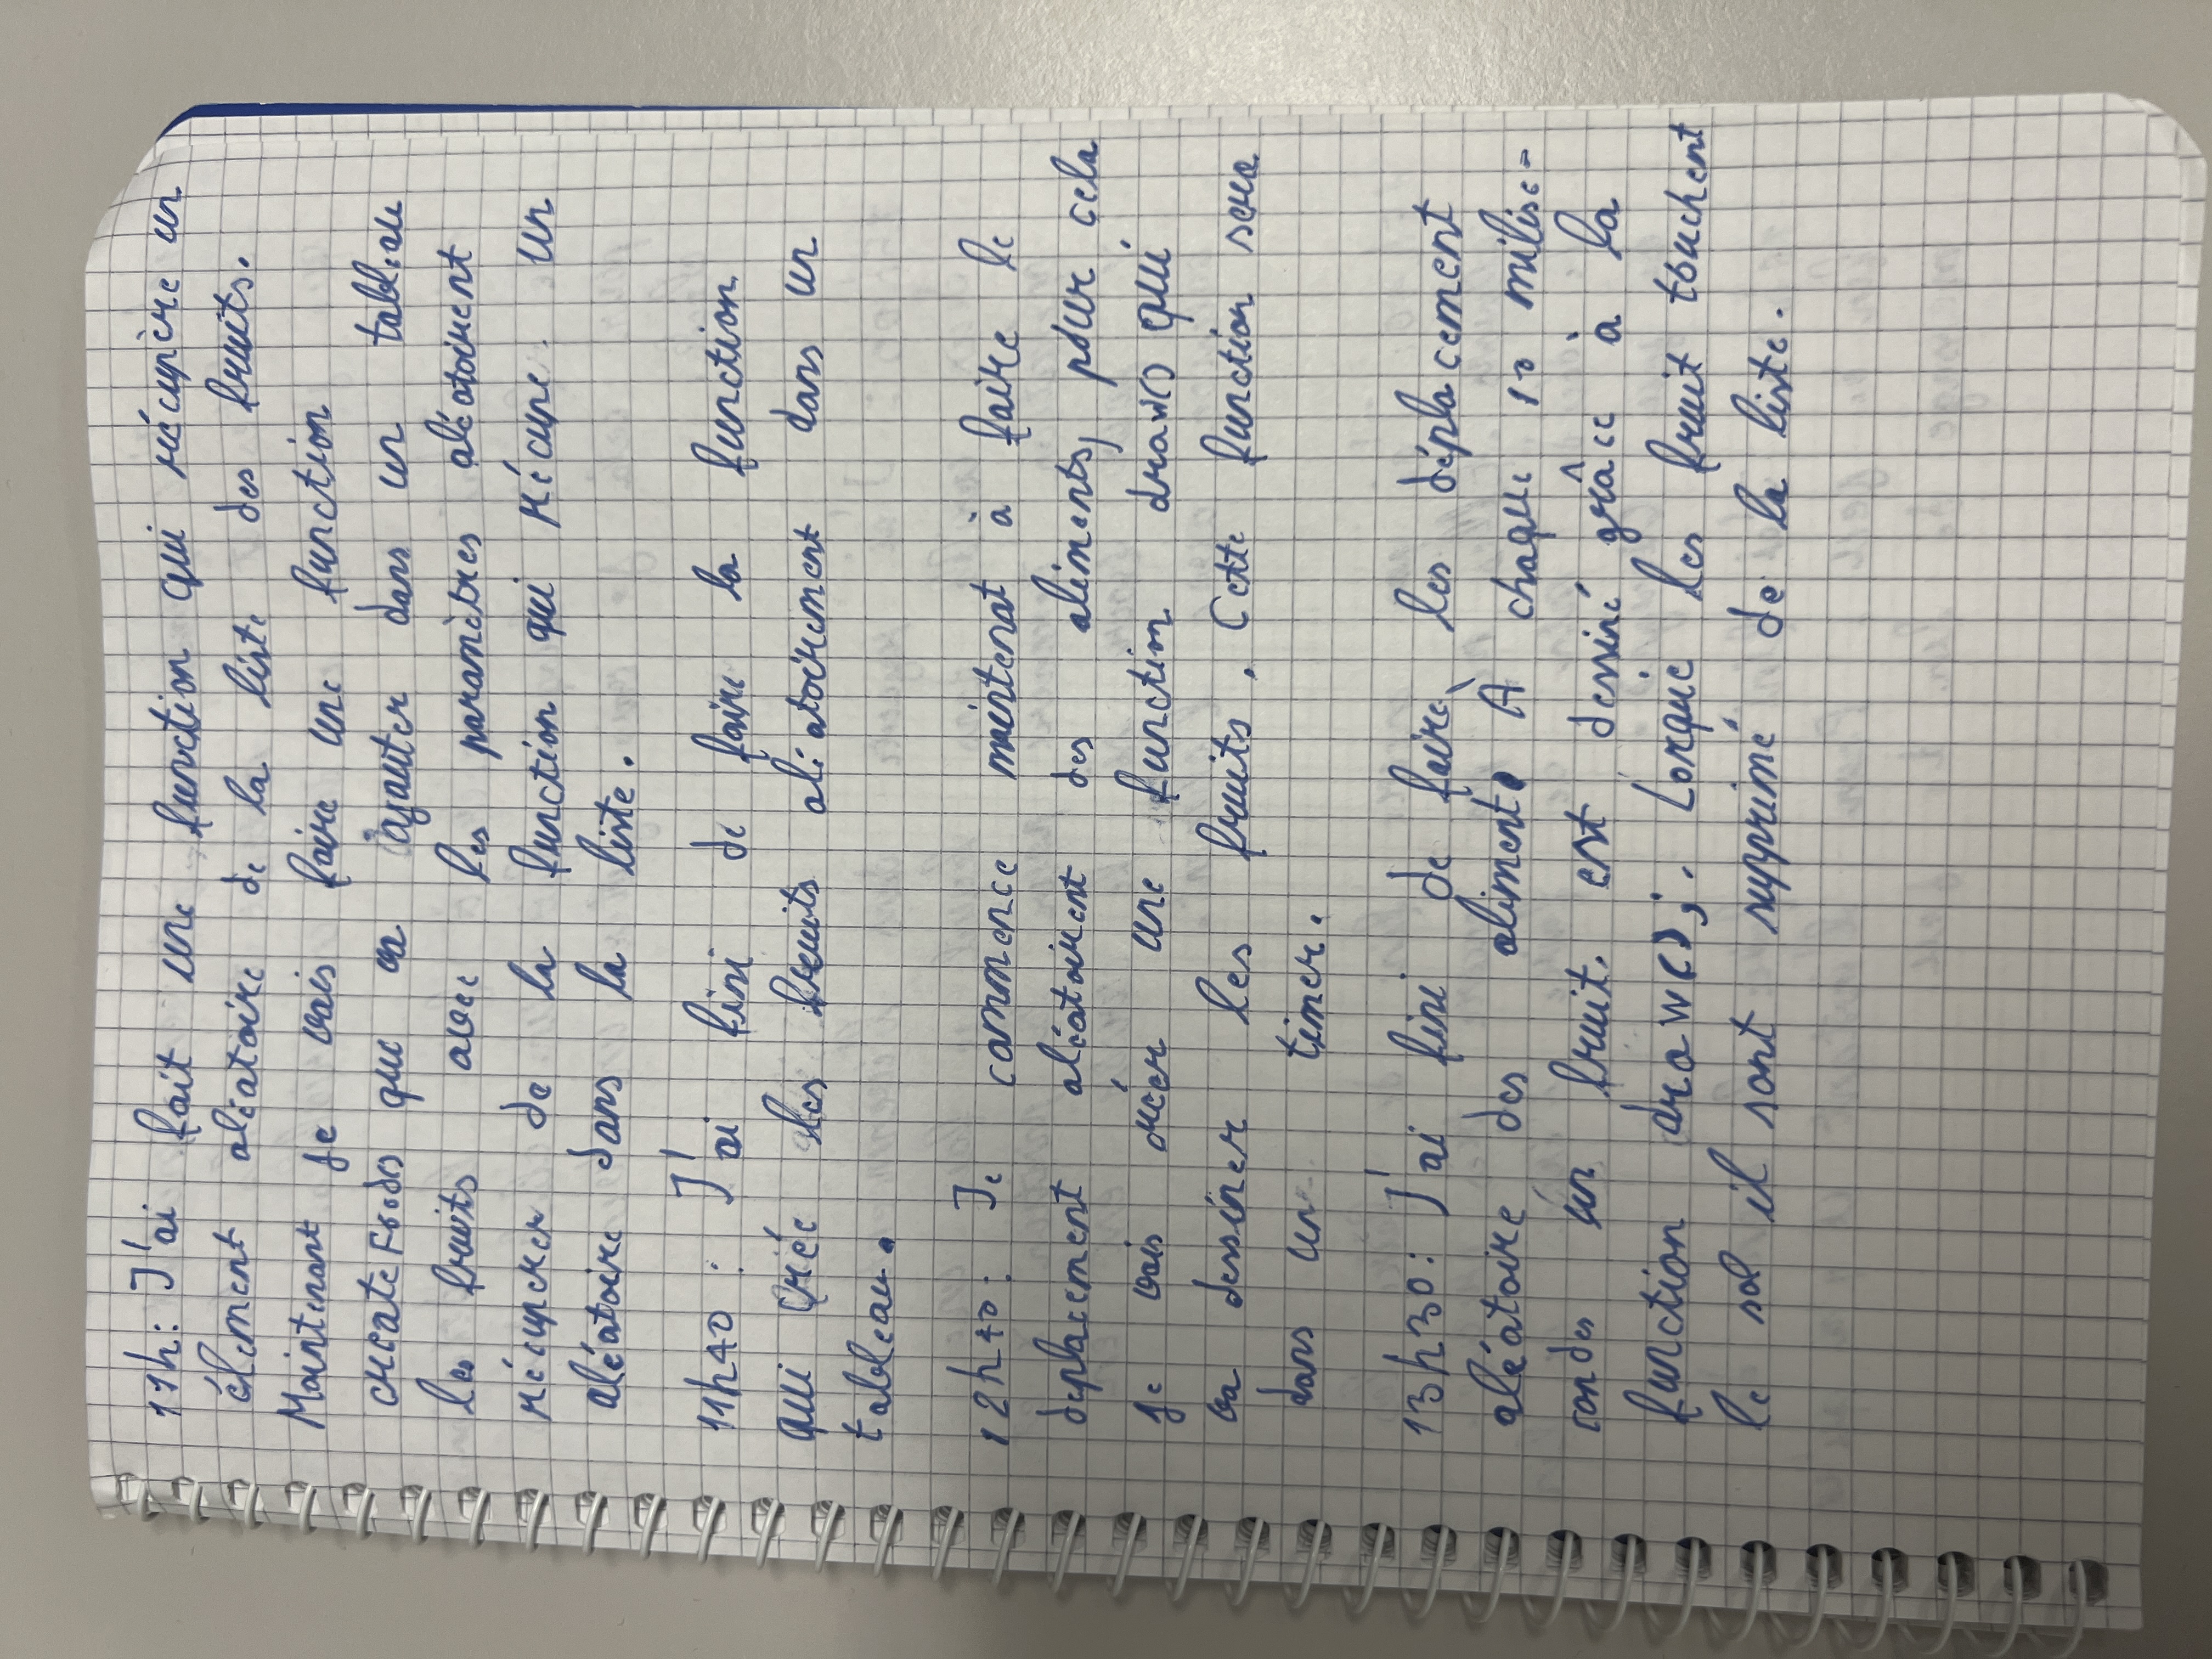 11h: J'ai fait une function qui récupère un
élement aléatoire de la liste des fruits.
Maintenant je vais faire une function
createFoods que va ajouter dans un tableau
les fruits avec les paramètres aléatoirent
récuperer de la function qui récupe. un
aléatoire dans la liste.
11h40 : J'ai fini de faire la function
qui créé les fruits aléatoirement dans un
tableau.
12h40: Je commence maintenat à faire le
deplacement aléatoirent des aliments, pour cela
je vais créer une function draw() qui
va dessiner les fruits. Cette function sera
dans un timer.
13h30: J'ai fini de faire les déplacement
aléatoire des aliment. À chaque 10 milise-
condes un fruit. est dessiné grâce à la
function draw();. Lorque les fruit touchent
le sol il sont supprimé de la liste.